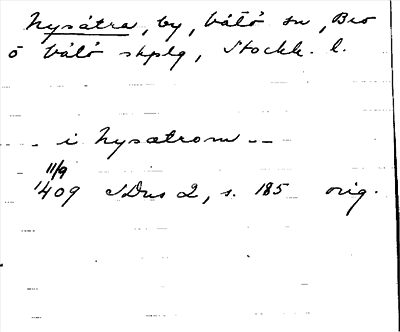 Nysätra, by, Vätö sn, Bro
o Vätö skplg, Stockh. l.
- i Nysætrom --
11/9
1409 SDns 2, s. 185 orig.